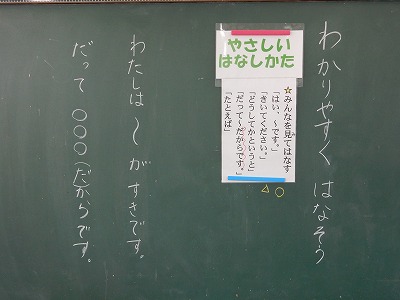 わかりやすく はなそう
やさしい
はなしかた
☆みんなを見てはなす
「はい、~です。」
「きいてください。」
「どうしてかというと」
「だって~だからです。」
「たとえば」
△○
わたしは ~ がすきです。
だって ○○○(だからです。